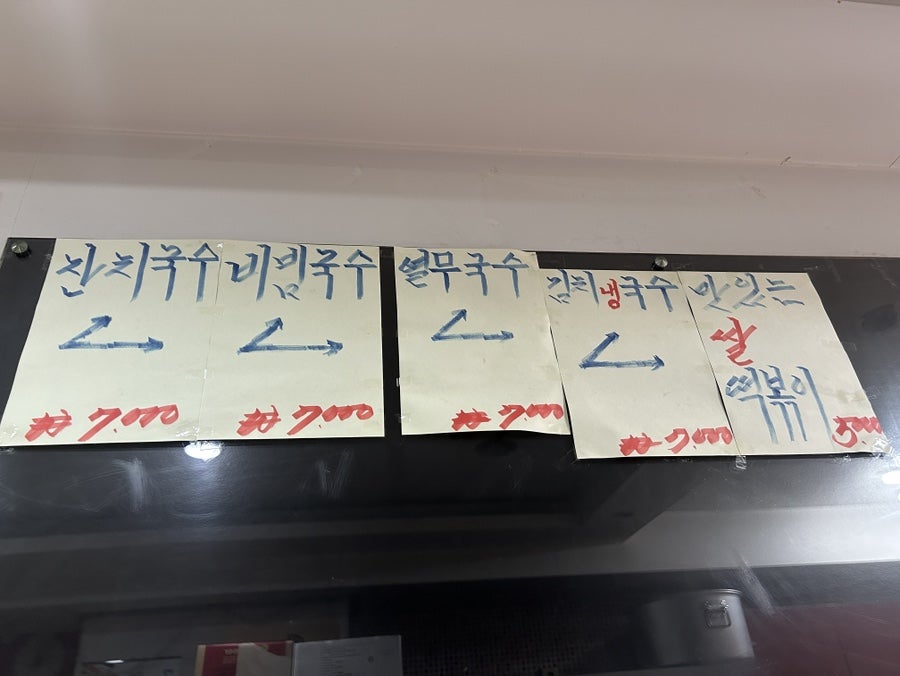 잔치국수
₩ 7,000
비빔국수
₩ 7,000
열무국수
₩ 7,000
김치냉국수
₩ 7,000
맛있는
쌀
떡볶이
5,000